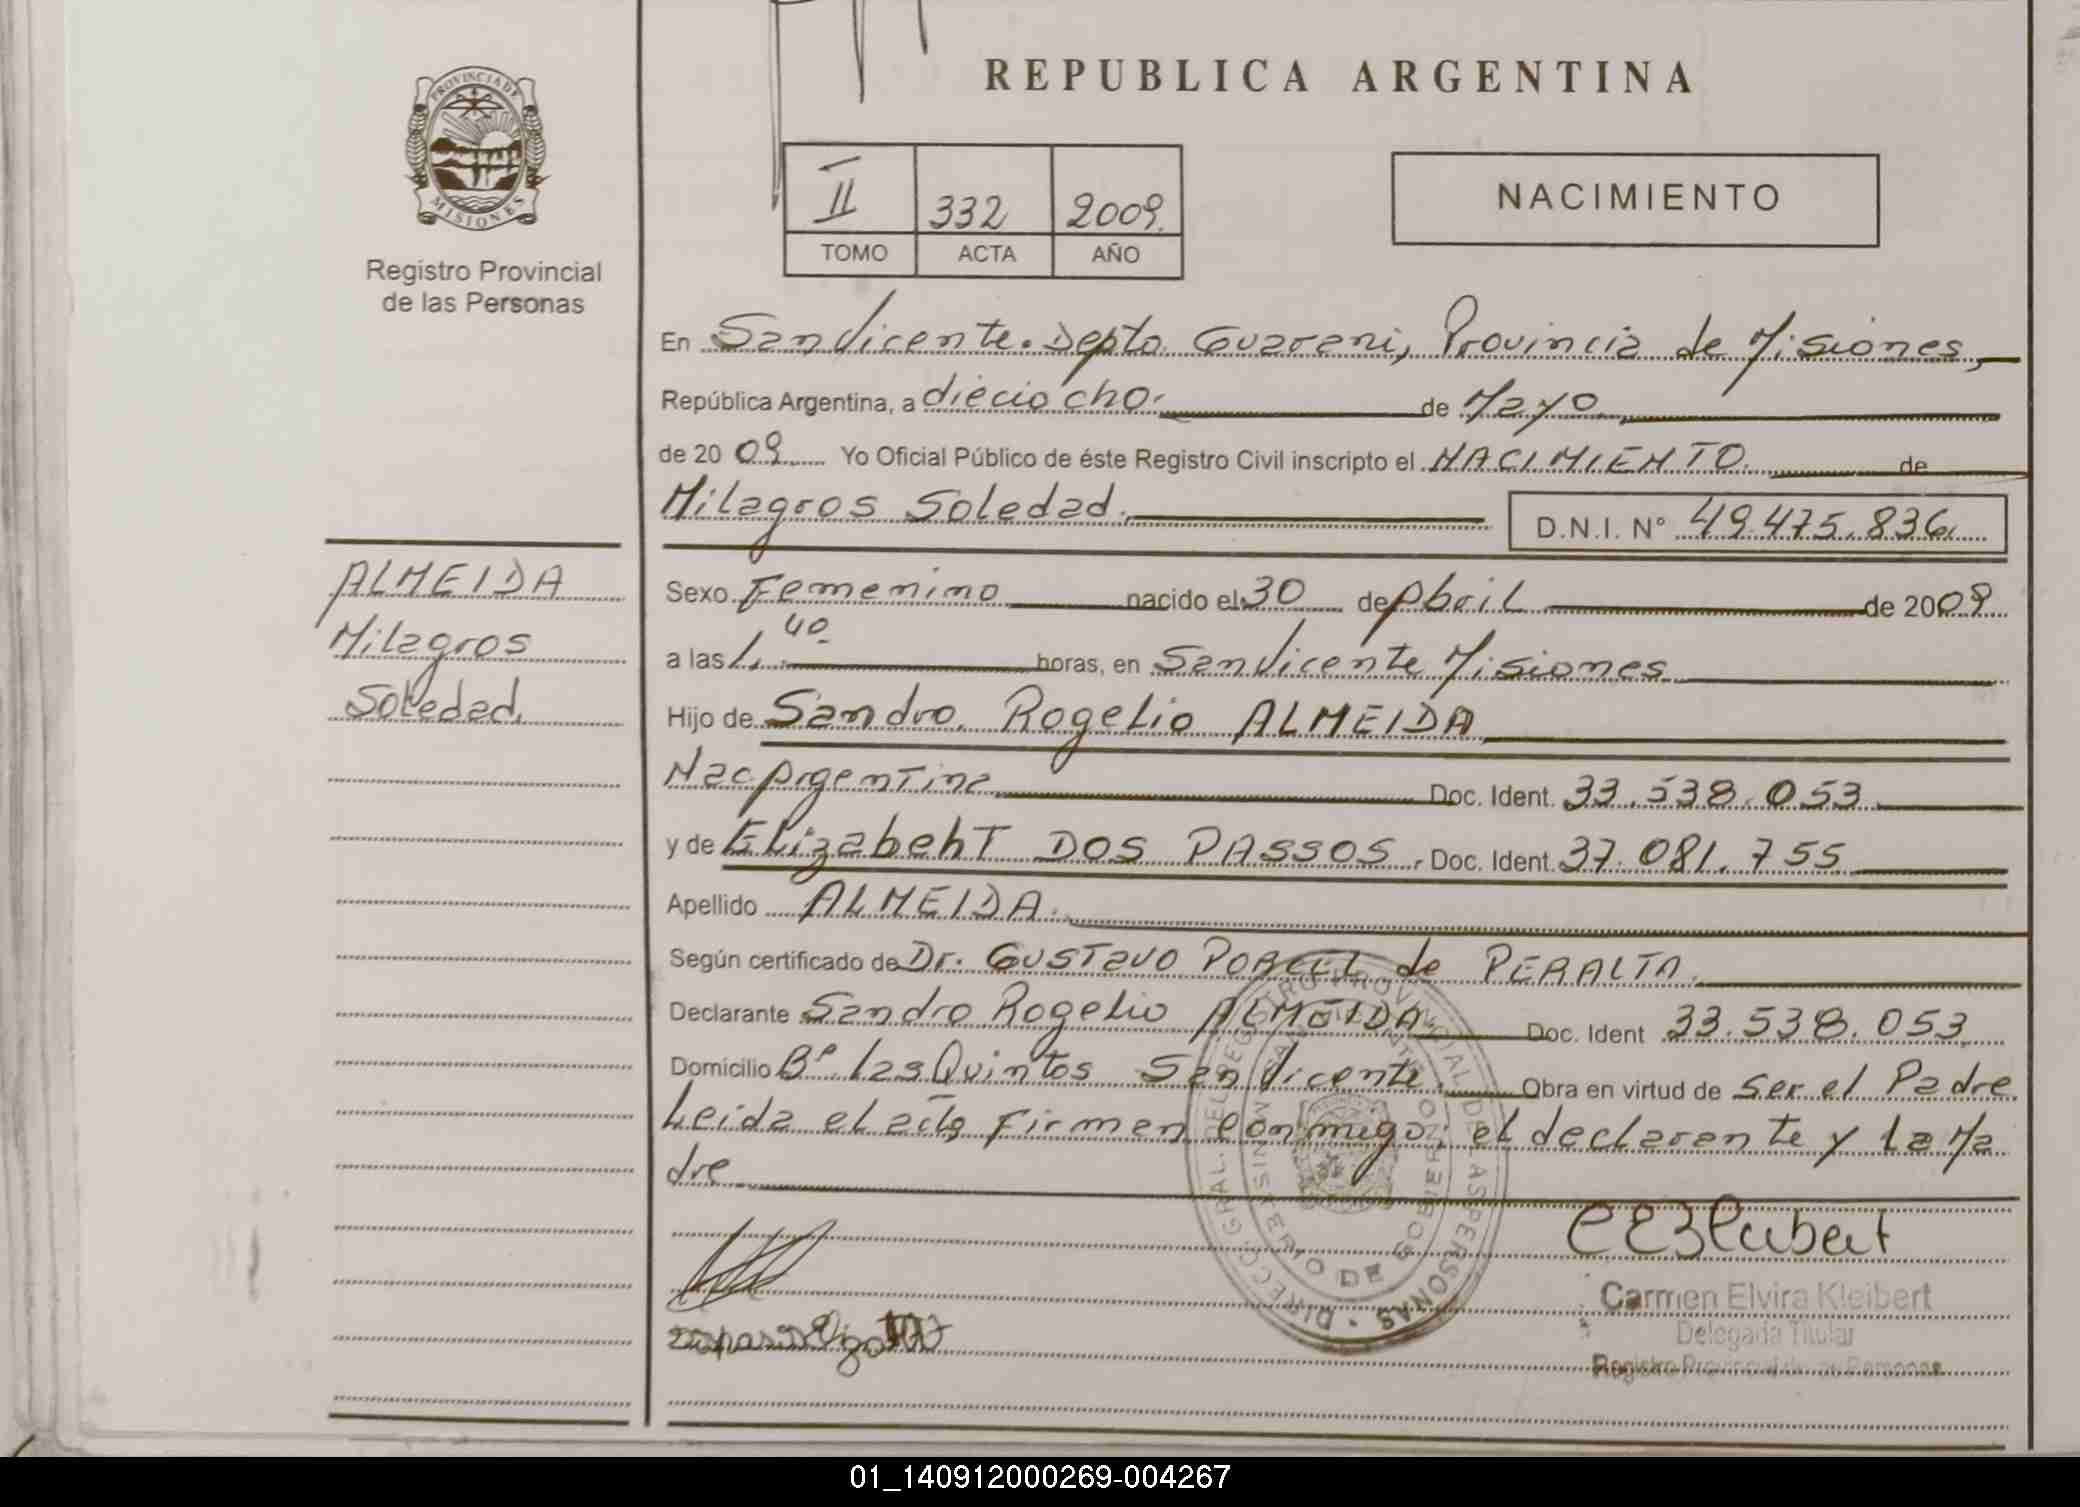 REPUBLICA ARGENTINA
PROVINCIA DE
MISIONES
Registro Provincial
de las Personas
II 332 2009.
TOMO ACTA AÑO
NACIMIENTO
En San Vicente. Depto Guarani, Provincia de Misiones,
República Argentina, a dieciocho. de Mayo
de 2009. Yo Oficial Público de éste Registro Civil inscripto el NACIMIENTO. de
Milagros Soledad. D.N.I. N° 49.475.836.
ALMEIDA
Milagros
Soledad.
Sexo Femenino nacido el 30 de Abril de 2009
a las 1,40 horas, en San Vicente Misiones
Hijo de Sandro Rogelio ALMEIDA
Nac Argentina Doc. Ident. 33.538.053
y de Elizabeht DOS PASSOS. Doc. Ident. 37.081.755
Apellido ALMEIDA.
Según certificado de Dr. Gustavo PORCEL de PERALTA.
Declarante Sandro Rogelio ALMEIDA Doc. Ident 33.538.053
Domicilio B° las Quintas San Vicente. Obra en virtud de ser el Padre
Leida el acta firman conmigo: el declarante y la Ma
dre
DIRECC. GRAL. DEL REGISTRO PROVINCIAL DE LAS PERSONAS
MINISTERIO DE GOBIERNO
Carmen Elvira Kleibert
Delegada Titular
Registro Provincial de las Personas
01_140912000269-004267